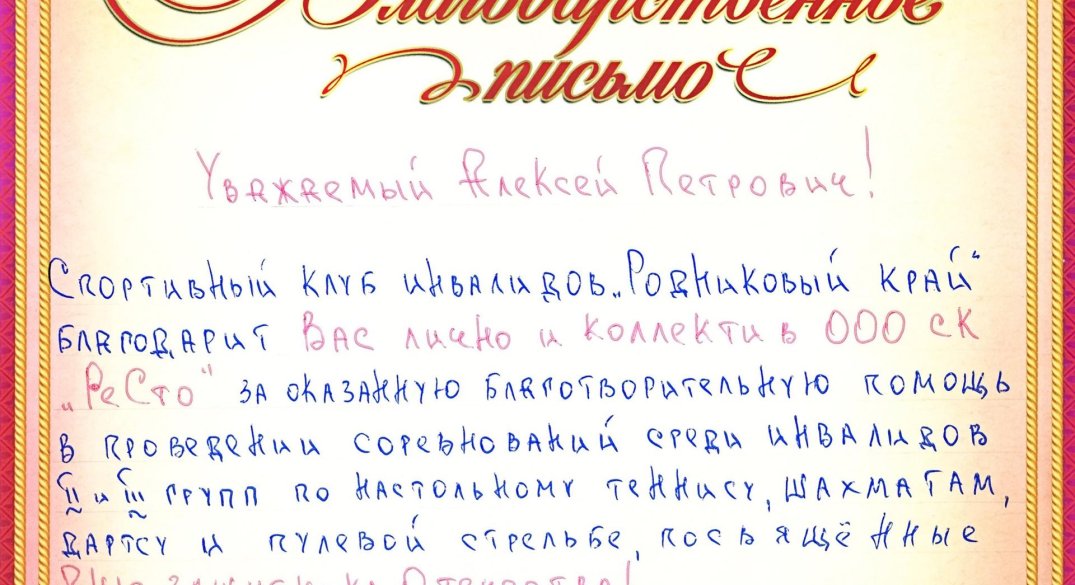 Благодарственное
письмо
Уважаемый Алексей Петрович!
Спортивный клуб инвалидов „Родниковый край"
благодарит Вас лично и коллектив ООО СК
„РеСто" за оказанную благотворительную помощь
в проведении соревнований среди инвалидов
II и III групп по настольному теннису, шахматам,
дартсу и пулевой стрельбе, посвящённые
Дню защитника Отечества!